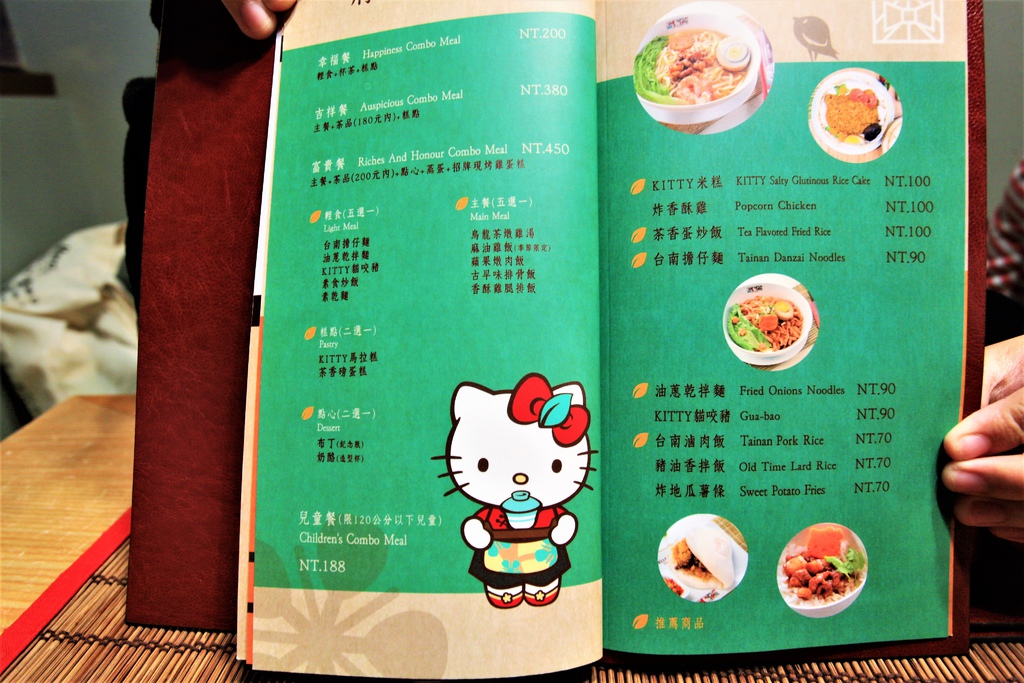 幸福餐 Happiness Combo Meal NT.200
輕食+杯茶+糕點
吉祥餐 Auspicious Combo Meal NT.380
主餐+茶品(180元內)+糕點
富貴餐 Riches And Honour Combo Meal NT.450
主餐+茶品(200元內)+點心+蒸蛋+招牌現烤雞蛋糕
輕食(五選一)
Light Meal
台南擔仔麵
油蔥乾拌麵
KITTY貓咬豬
素食炒飯
素乾麵
主餐(五選一)
Main Meal
烏龍茶燉雞湯
麻油雞飯(季節限定)
蘋果燉肉飯
古早味排骨飯
香酥雞腿排飯
糕點(二選一)
Pastry
KITTY馬拉糕
茶香磅蛋糕
點心(二選一)
Dessert
布丁(紀念瓶)
奶酪(造型杯)
兒童餐(限120公分以下兒童)
Children's Combo Meal
NT.188
KITTY米糕 KITTY Salty Glutinous Rice Cake NT.100
炸香酥雞 Popcorn Chicken NT.100
茶香蛋炒飯 Tea Flavored Fried Rice NT.100
台南擔仔麵 Tainan Danzai Noodles NT.90
油蔥乾拌麵 Fried Onions Noodles NT.90
KITTY貓咬豬 Gua-bao NT.90
台南滷肉飯 Tainan Pork Rice NT.70
豬油香拌飯 Old Time Lard Rice NT.70
炸地瓜薯條 Sweet Potato Fries NT.70
推薦商品